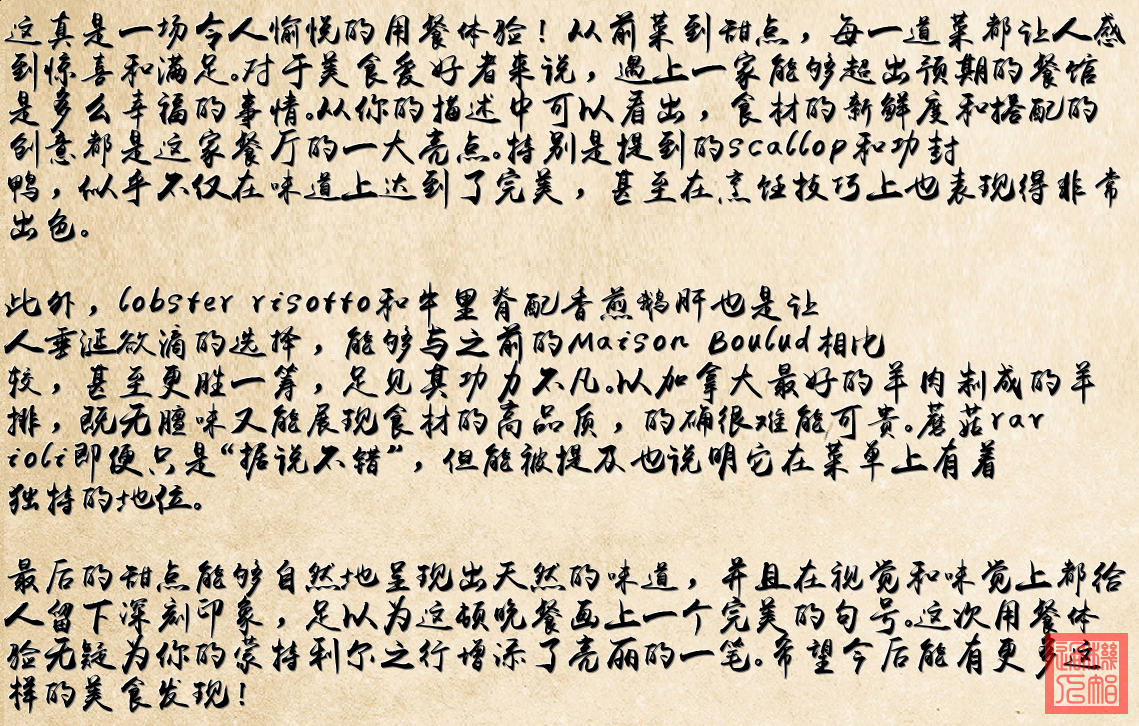 这真是一场令人愉悦的用餐体验！从前菜到甜点，每一道菜都让人感
到惊喜和满足。对于美食爱好者来说，遇上一家能够超出预期的餐馆
是多么幸福的事情。从你的描述中可以看出，食材的新鲜度和搭配的
创意都是这家餐厅的一大亮点。特别是提到的scallop和功封
鸭，似乎不仅在味道上达到了完美，甚至在烹饪技巧上也表现得非常
出色。
此外，lobster risotto和牛里脊配香煎鹅肝也是让
人垂涎欲滴的选择，能够与之前的Maison Boulud相比
较，甚至更胜一筹，足见其功力不凡。以加拿大最好的羊肉制成的羊
排，既无膻味又能展现食材的高品质，的确很难能可贵。蘑菇rav
ioli即便只是“据说不错”，但能被提及也说明它在菜单上有着
独特的地位。
最后的甜点能够自然地呈现出天然的味道，并且在视觉和味觉上都给
人留下深刻印象，足以为这顿晚餐画上一个完美的句号。这次用餐体
验无疑为你的蒙特利尔之行增添了亮丽的一笔。希望今后能有更多这
样的美食发现！